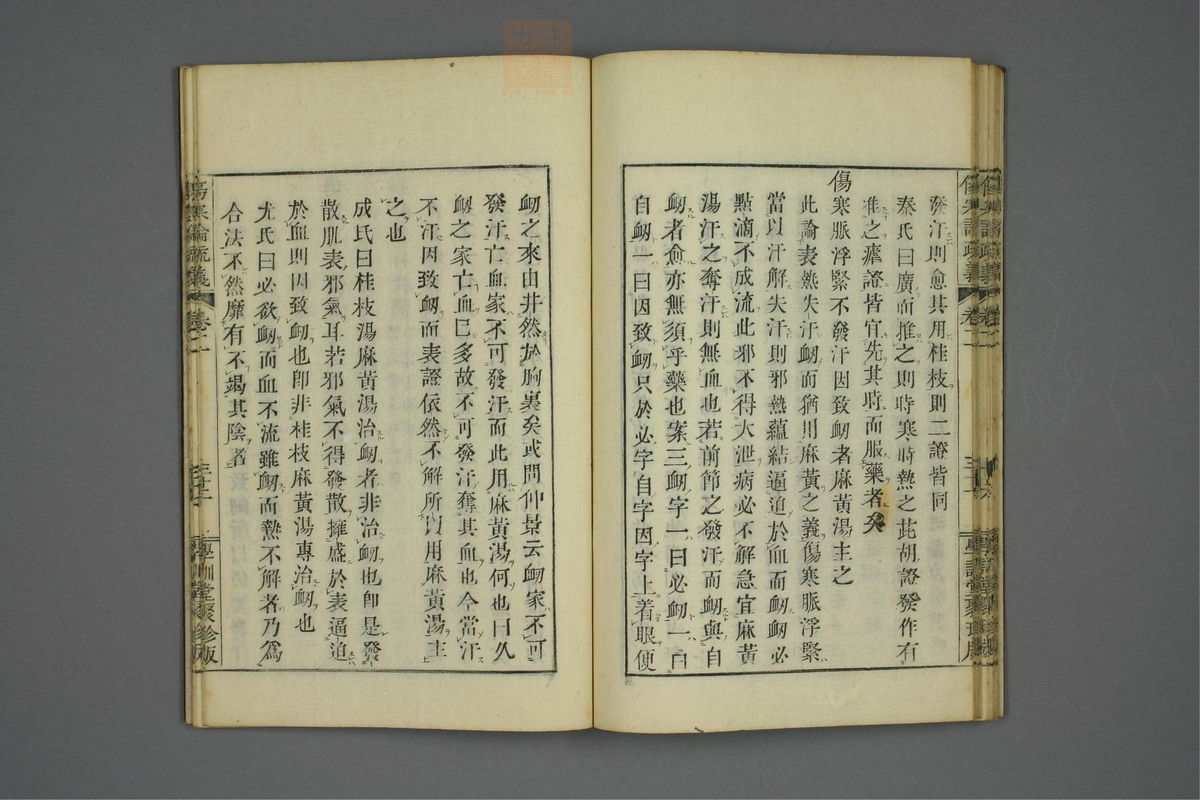 發汗則愈其用桂枝則二證皆同
秦氏曰廣而推之則時寒時熱之茈胡證發作有
准之瘧證皆宜先其時而服藥者矣
傷寒脈浮緊不發汗因致衂者麻黃湯主之
此論表熱失汗衂而猶用麻黃之義傷寒脈浮緊
當以汗解失汗則邪熱蘊結逼迫於血而衂衂必
點滴不成流此邪不得大泄病必不解急宜麻黃
湯汗之奪汗則無血也若前節之發汗而衂與自
衂者愈亦無須乎藥也案三衂字一曰必衂一曰
自衂一曰因致衂只於必字自字因字上着眼便
衂之來由井然於胸裏矣或問仲景云衂家不可
發汗亡血家不可發汗而此用麻黃湯何也曰久
衂之家亡血已多故不可發汗奪其血也今當汗
不汗因致衂而表證依然不解所以用麻黃湯主
之也
成氏曰桂枝湯麻黃湯治衂者非治衂也卽是發
散肌表邪氣耳若邪氣不得發散擁盛於表逼迫
於血則因致衂也卽非桂枝麻黃湯專治衂也
尤氏曰必欲衂而血不流雖衂而熱不解者乃爲
合法不然靡有不竭其陰者
傷寒論疏義
卷二
學訓堂聚珍版